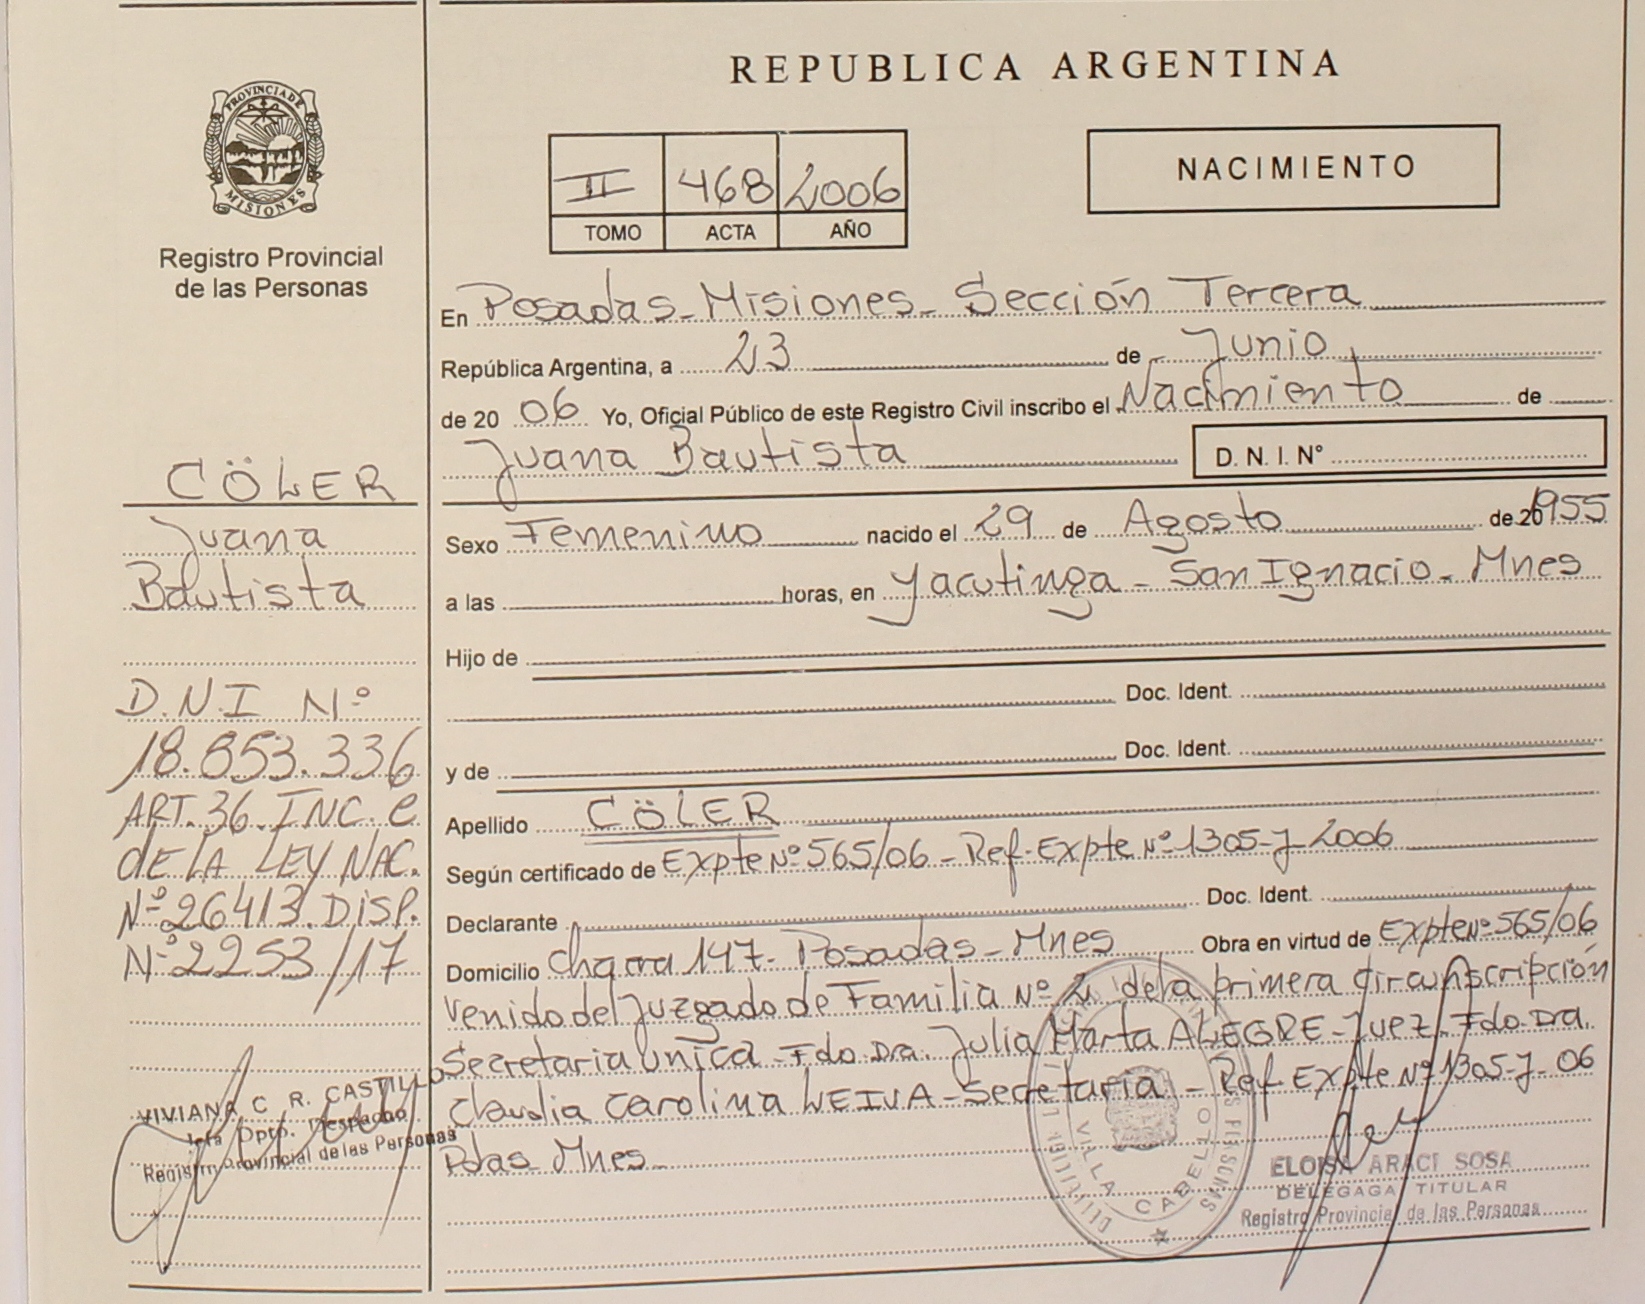 PROVINCIA DE
MISIONES
Registro Provincial
de las Personas
CÖLER
Juana
Bautista
D.N.I Nº
18.853.336
ART. 36. INC. C
de LA LEY NAC.
Nº 26413. DISP.
Nº 2253/17
VIVIANA C R. CASTILLO
Jefa Dpto. Despacho
Registro Provincial de las Personas
REPUBLICA ARGENTINA
II 468 2006
TOMO ACTA AÑO
NACIMIENTO
En Posadas - Misiones - Sección Tercera
República Argentina, a 23 de Junio
de 20 06 Yo, Oficial Público de este Registro Civil inscribo el Nacimiento de
Juana Bautista D. N. I. Nº
Sexo Femenino nacido el 29 de Agosto de 20 1955
a las horas, en Yacutinga - San Ignacio - Mnes
Hijo de
Doc. Ident.
y de Doc. Ident.
Apellido CÖLER
Según certificado de Expte Nº 565/06 - Ref. Expte Nº 1305-J-2006
Declarante Doc. Ident.
Domicilio Chacra 147 - Posadas - Mnes Obra en virtud de Expte Nº 565/06
venido del Juzgado de Familia Nº 2 de la primera circunscripción
Secretaria Unica - Fdo. Dra. Julia Marta ALEGRE - Juez - Fdo. Dra.
Claudia Carolina LEIVA - Secretaria - Ref Expte Nº 1305-J-06
Pdas Mnes
VILLA CABELLO
ELOISA ARACI SOSA
DELEGADA TITULAR
Registro Provincial de las Personas